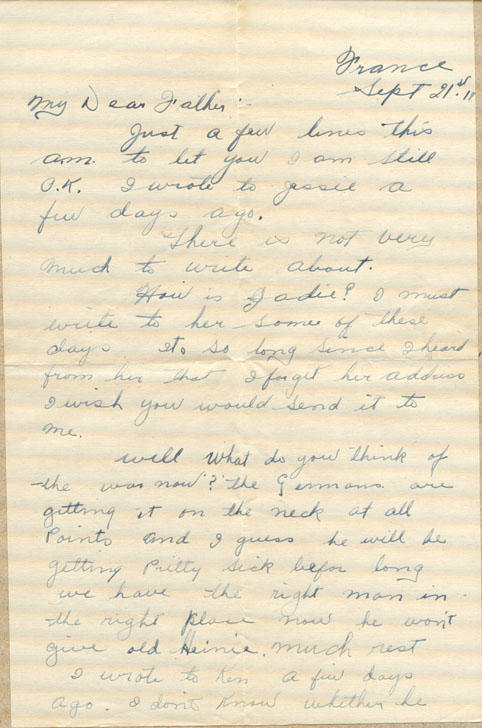 France
Sept 21st 18
My Dear Father:-
Just a few lines this
am. to let you I am still
O.K. I wrote to Jessie a
few days ago.
There is not very
much to write about.
How is Sadie? I must
write to her some of these
days its so long since I heard
from her that I forget her address
I wish you would send it to
me.
well what do you think of
the war now? the Germans are
getting it on the neck at all
Points and I guess he will be
getting Pretty sick befor long
we have the right man in
the right place now he won't
give old Heinie much rest
I wrote to Ken a few days
ago. I dont know whether he